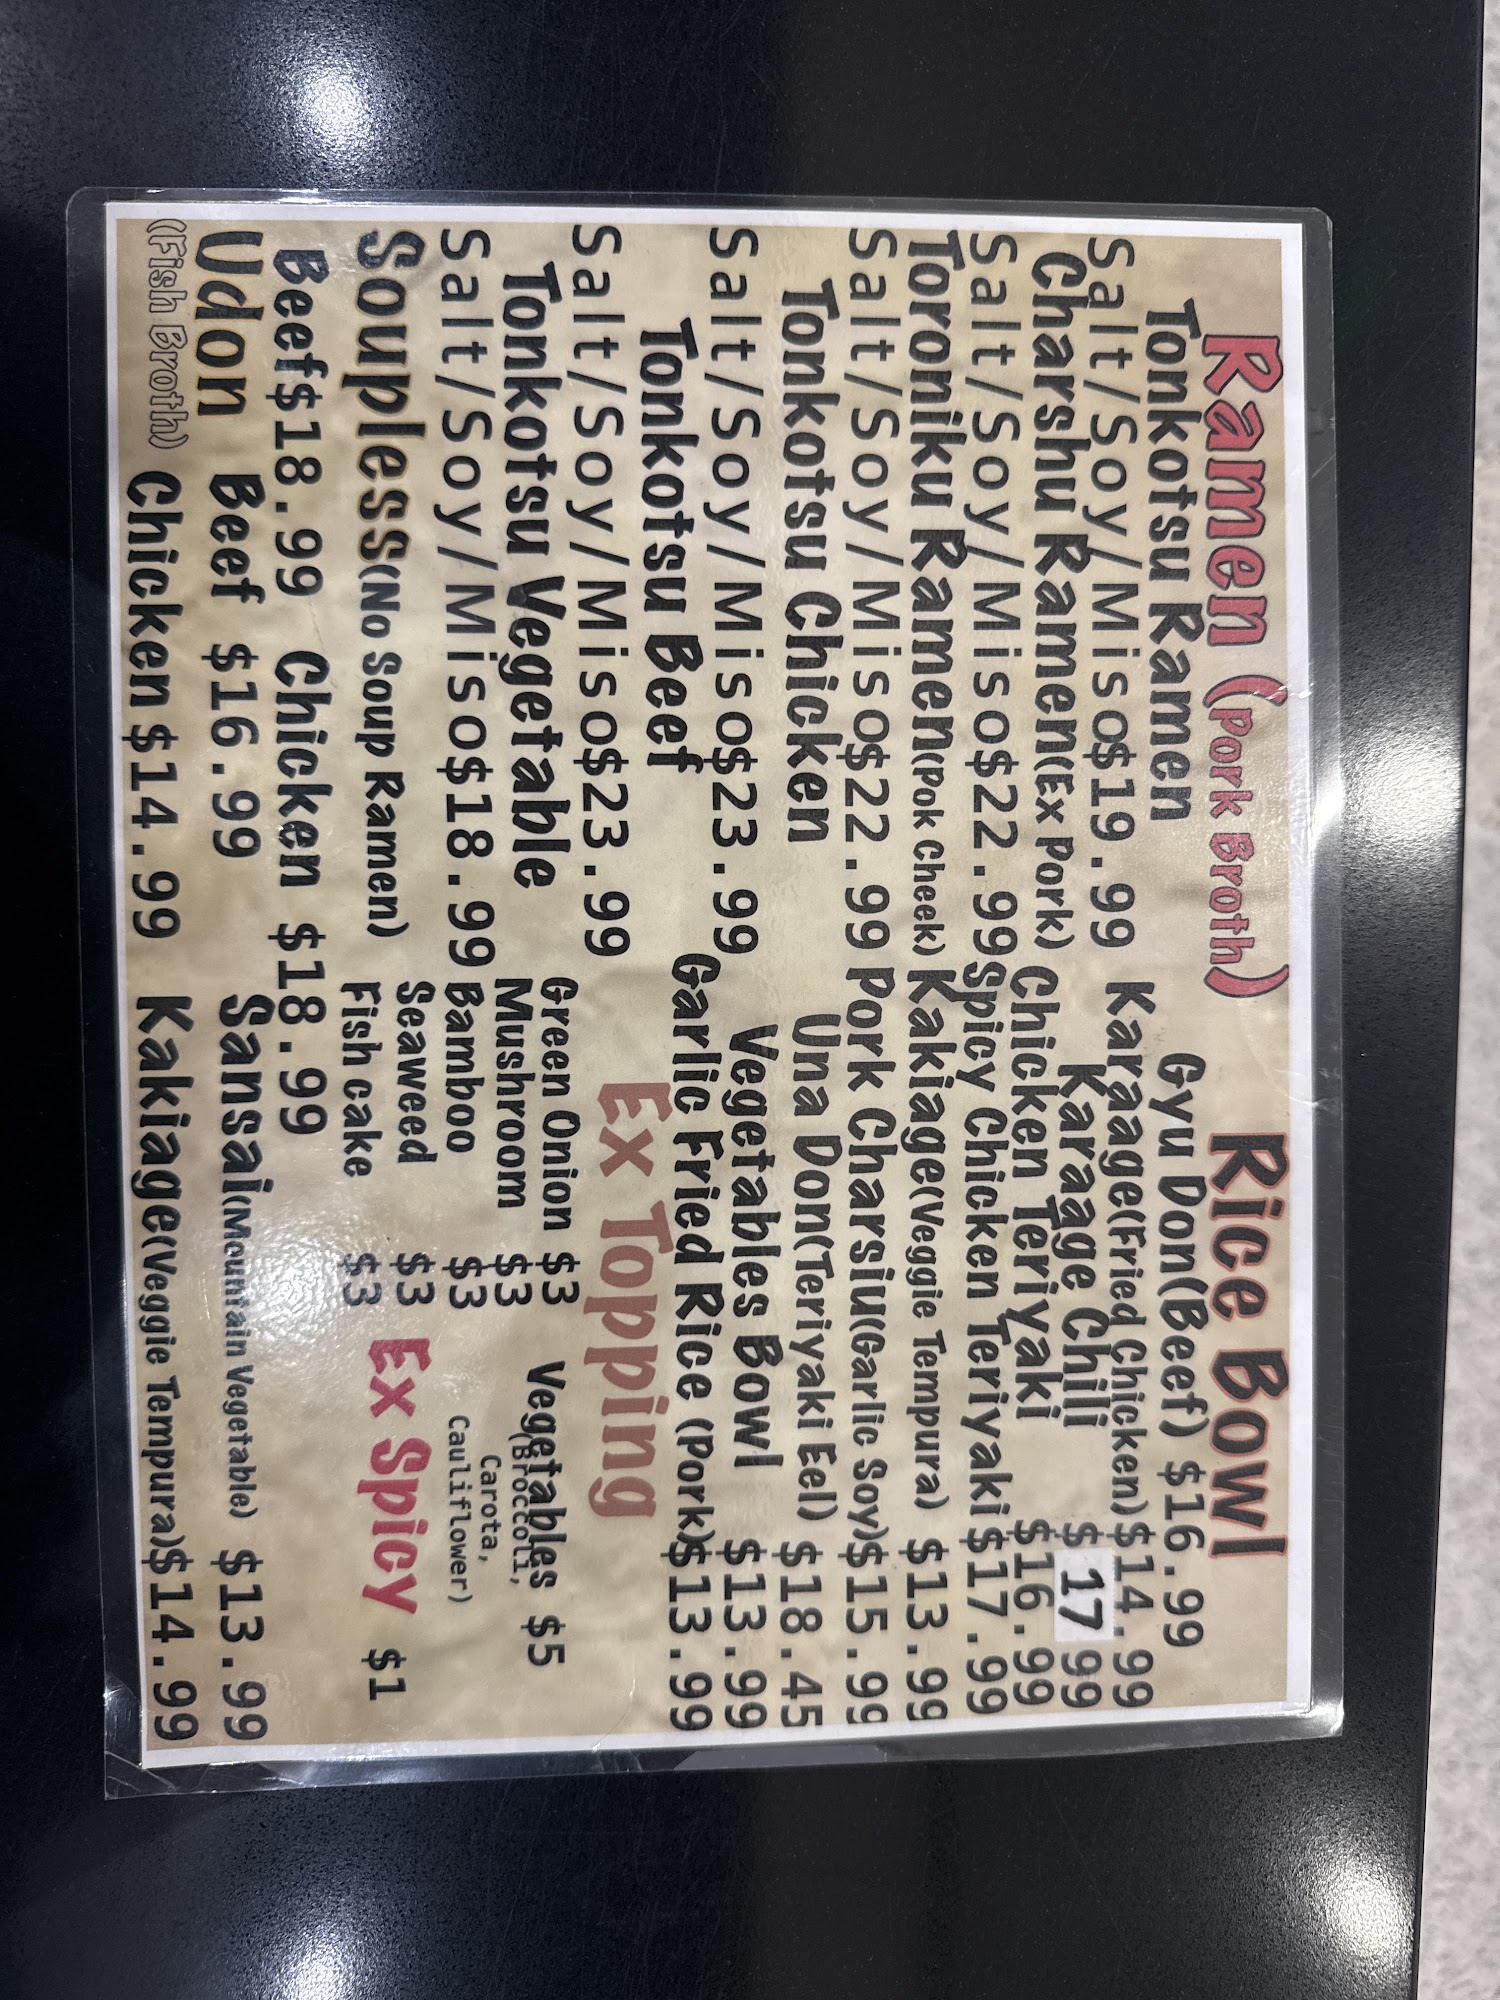 Ramen (Pork Broth)
Tonkotsu Ramen
Salt/Soy/Miso$19.99
Charshu Ramen(Ex Pork)
Salt/Soy/Miso$22.99
Toroniku Ramen(Pok Cheek)
Salt/Soy/Miso$22.99
Tonkotsu Chicken
Salt/Soy/Miso$23.99
Tonkotsu Beef
Salt/Soy/Miso$23.99
Tonkotsu Vegetable
Salt/Soy/Miso$18.99
Soupless(No Soup Ramen)
Beef$18.99 Chicken $18.99
Udon Beef $16.99
(Fish Broth) Chicken $14.99
Rice Bowl
Gyu Don(Beef) $16.99
Karaage(Fried Chicken) $14.99
Karaage Chili $17.99
Chicken Teriyaki $16.99
Spicy Chicken Teriyaki $17.99
Kakiage(Veggie Tempura) $13.99
Pork Charsiu(Garlic Soy)$15.99
Una Don(Teriyaki Eel) $18.45
Vegetables Bowl $13.99
Garlic Fried Rice (Pork)$13.99
Ex Topping
Green Onion $3
Mushroom $3
Bamboo $3
Seaweed $3
Fish cake $3
Vegetables $5
(Broccoli,
Carota,
Cauliflower)
Ex Spicy $1
Sansai(Mountain Vegetable) $13.99
Kakiage(Veggie Tempura)$14.99